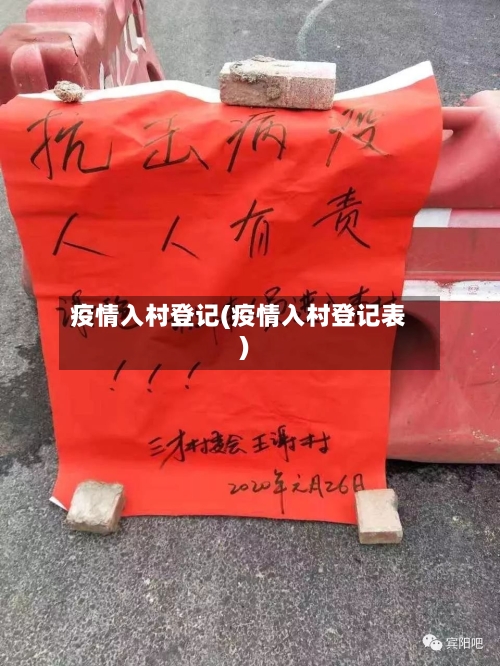 抗击病役
人人有责
疫情入村登记(疫情入村登记表
)
！！！
三才村委会王谢村
2020年元月26日
宾阳吧